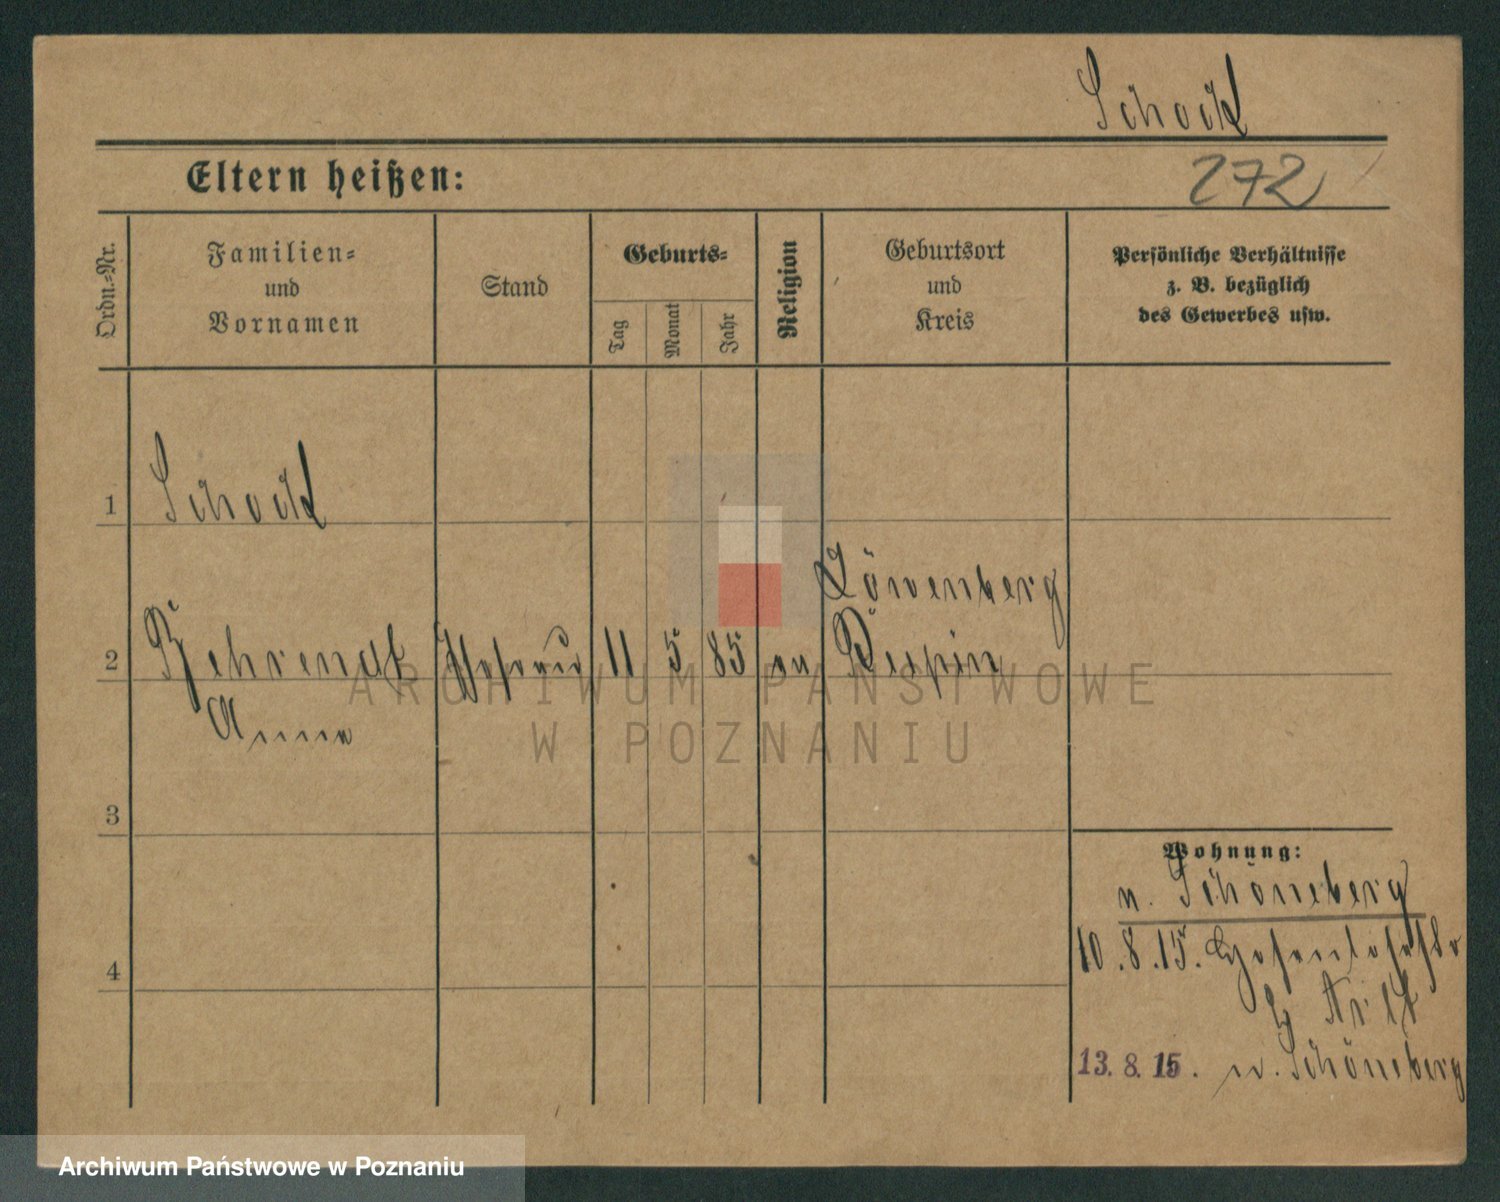 Schock
Eltern heißen:
272
Ordn.-Nr.
Familien-
und
Vornamen
Stand
Geburts-
Tag
Monat
Jahr
Religion
Geburtsort
und
Kreis
Persönliche Verhältnisse
z. B. bezüglich
des Gewerbes usw.
1 Schock
Löwenberg
2 Behrendt 11 5 85 ev
Anna
3
4
Wohnung:
n. Schöneberg
10.8.15.
13.8.15. n. Schöneberg
ARCHIWUM PAŃSTWOWE
W POZNANIU
Archiwum Państwowe w Poznaniu